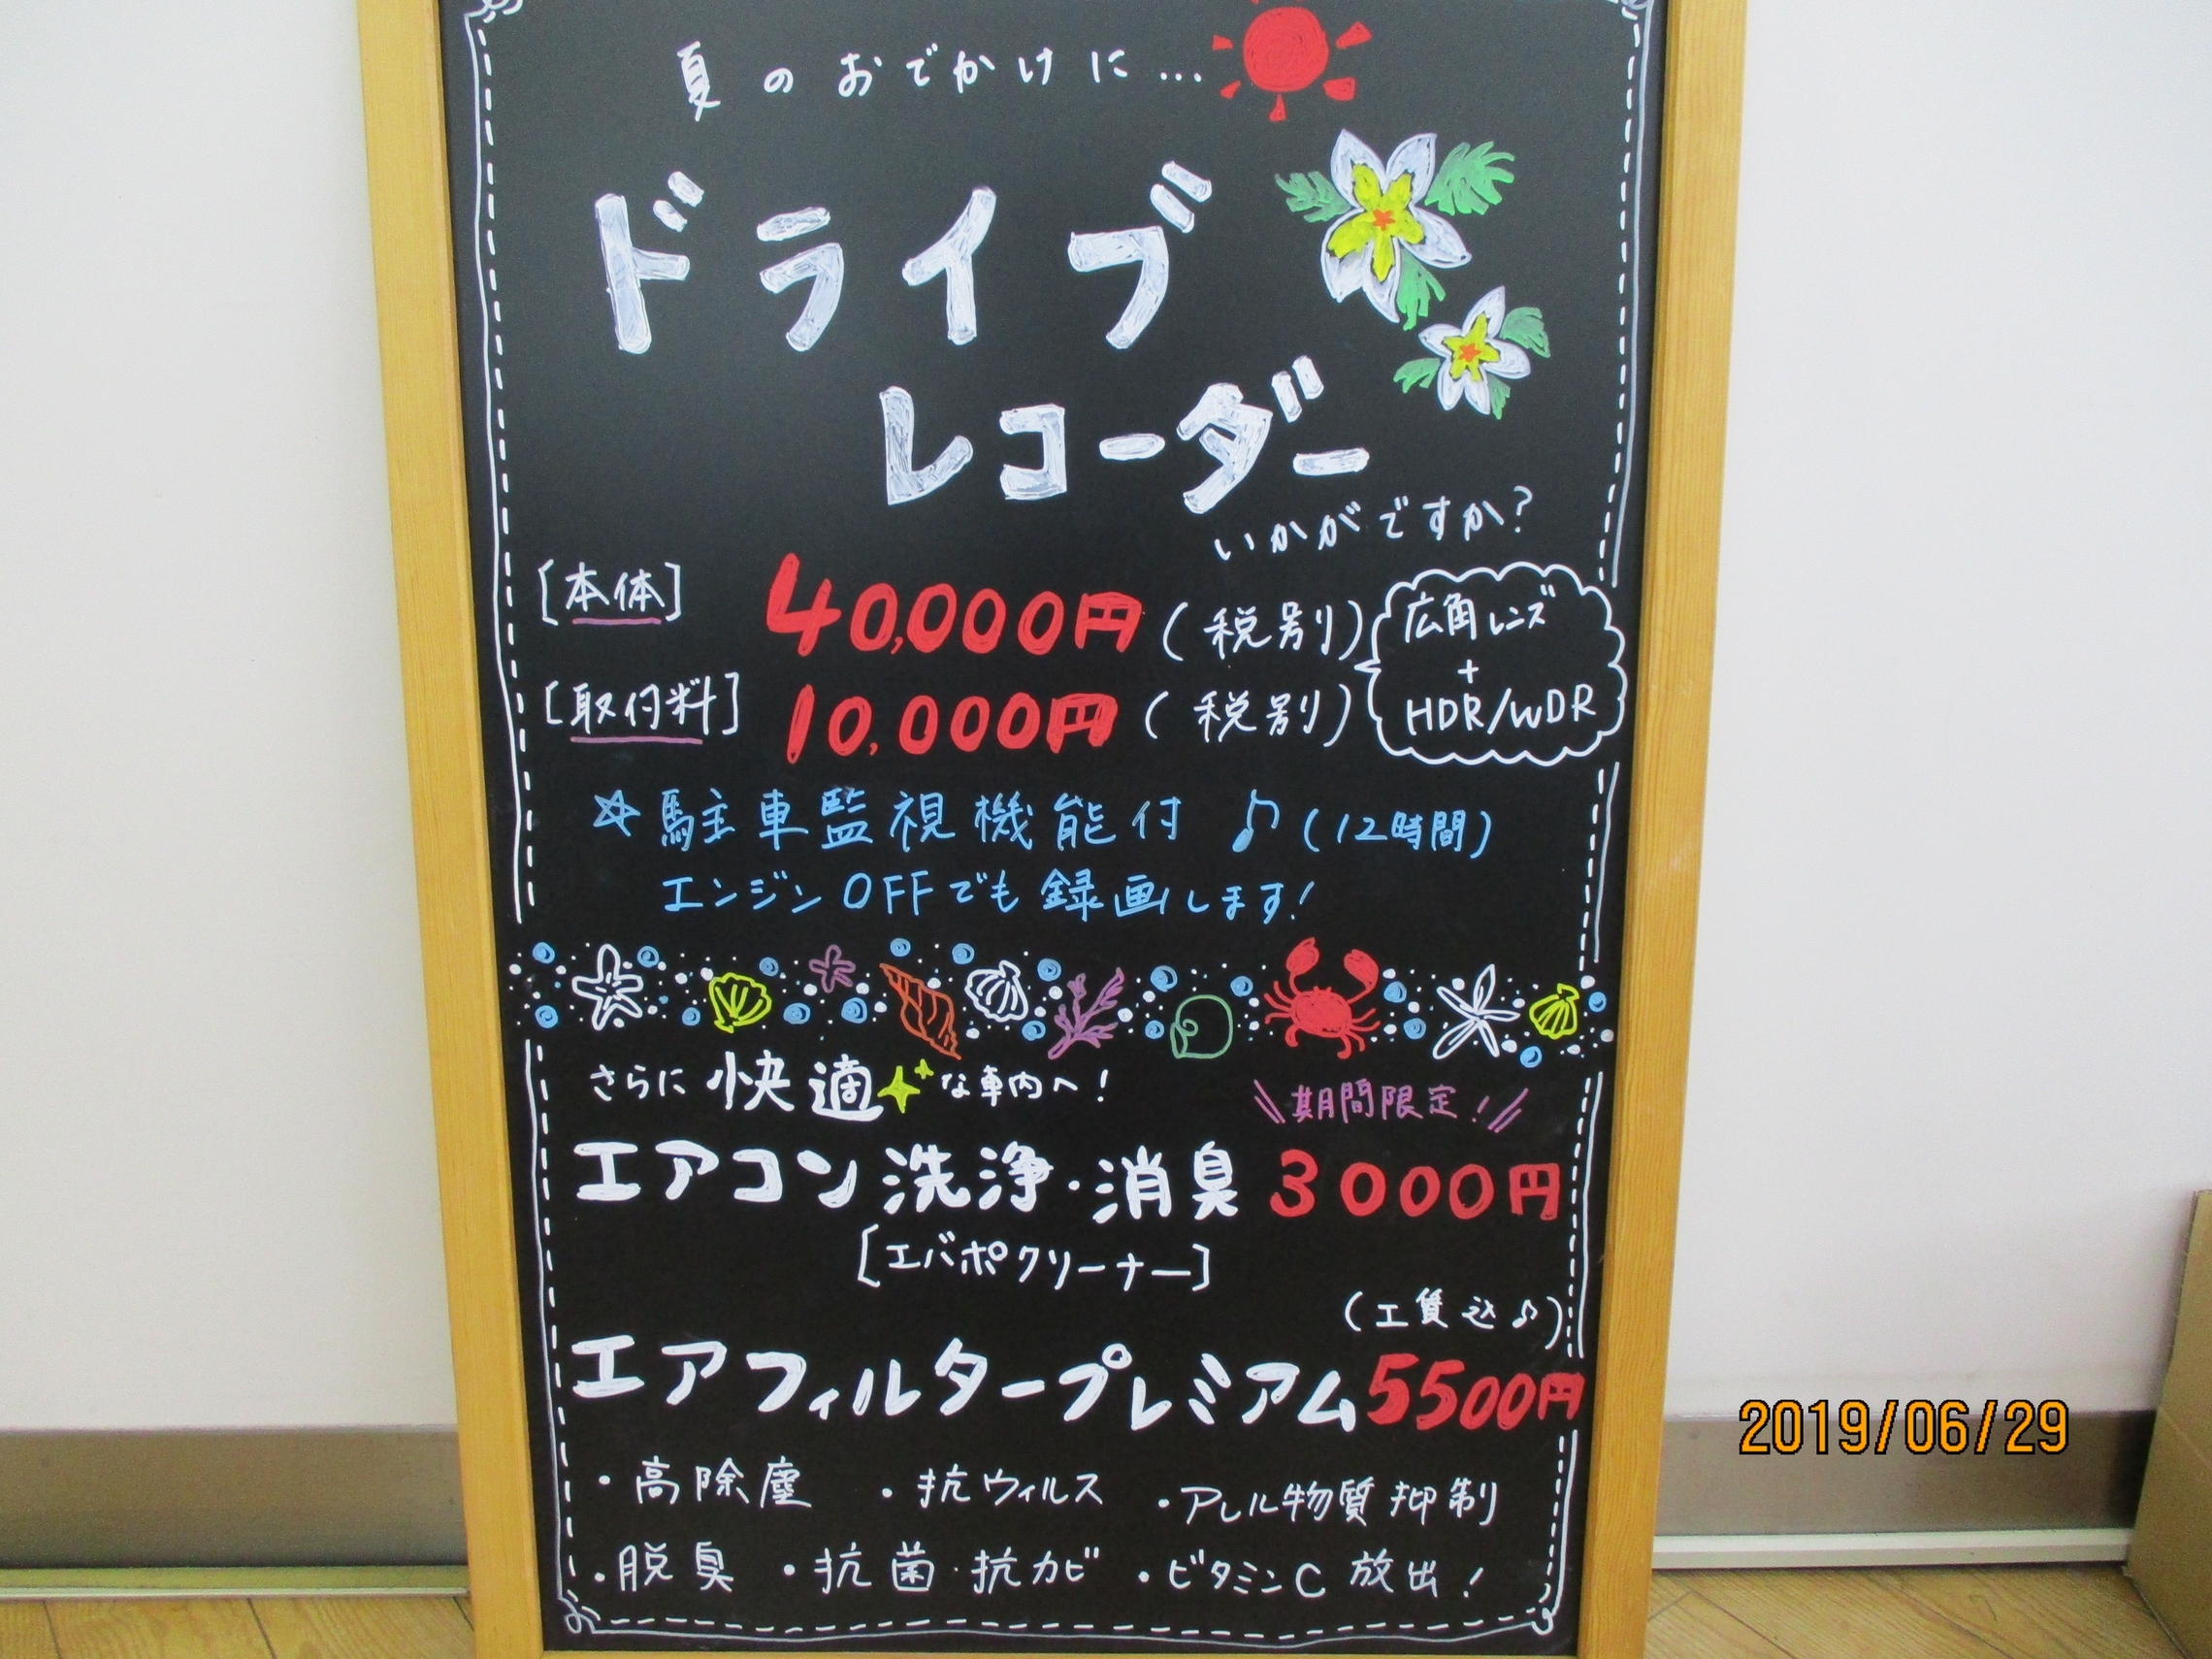 夏のおでかけに…
ドライブ
レコーダー
いかがですか?
[本体] 40,000円(税別)
[取付料] 10,000円(税別)
広角レンズ
+
HDR/WDR
☆駐車監視機能付♪(12時間)
エンジンOFFでも録画します!
さらに快適な車内へ!
\\期間限定!//
エアコン洗浄・消臭 3000円
[エバポクリーナー]
(工賃込♪)
エアフィルタープレミアム5500円
・高除塵 ・抗ウィルス ・アレル物質抑制
・脱臭 ・抗菌・抗カビ ・ビタミンC放出!
2019/06/29